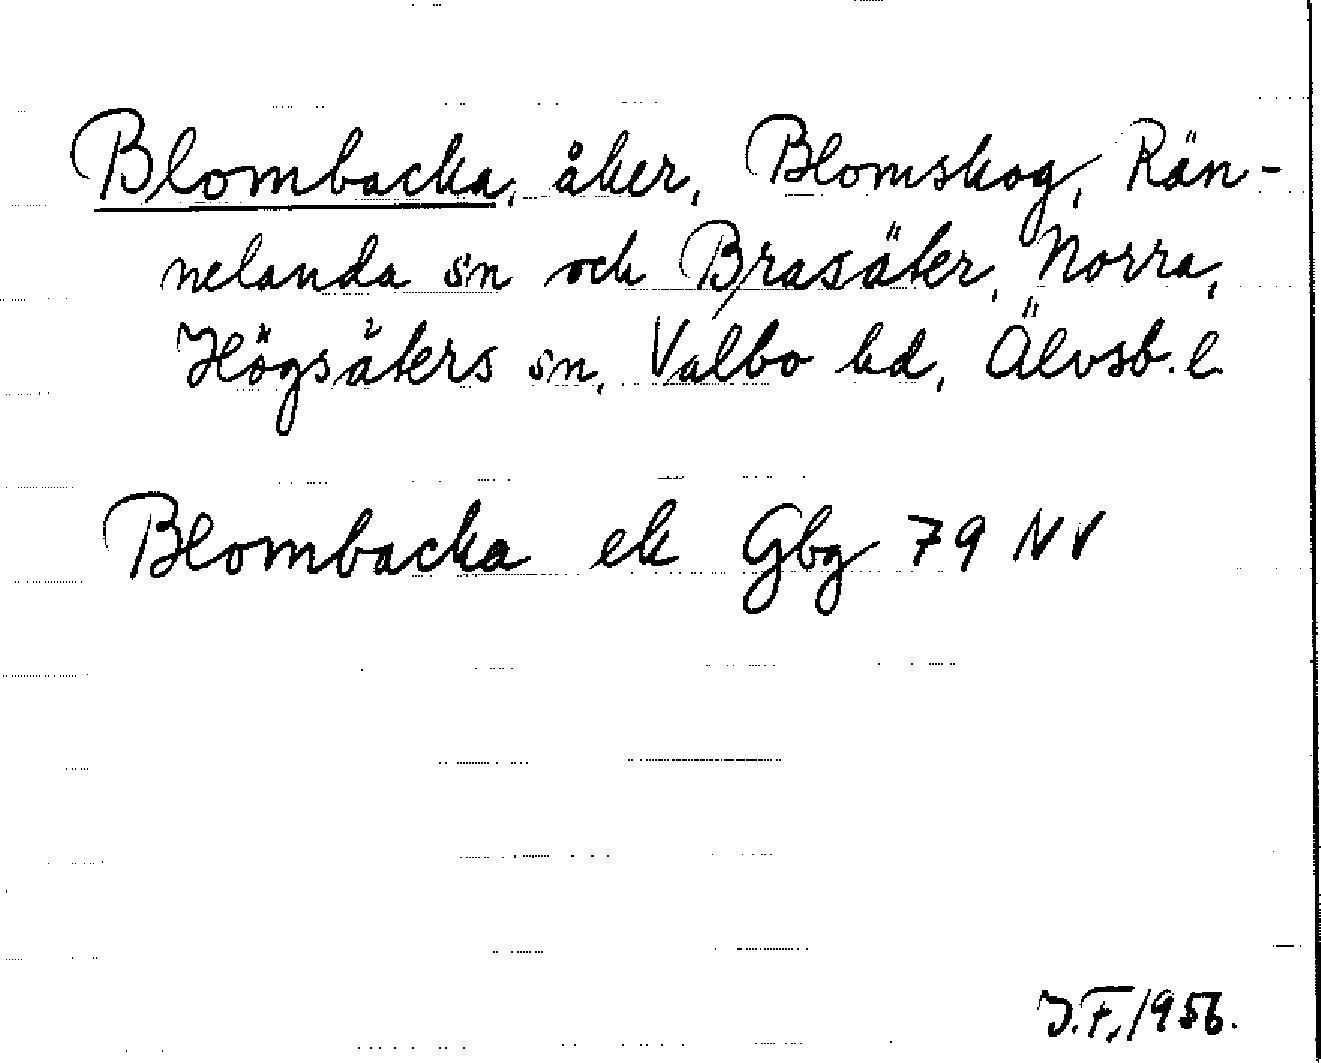 Blombacka, åker, Blomskog, Rän-
nelanda sn och Brasäter, Norra,
Högsäters sn, Valbo hd, Älvsb. l.
Blombacka ek Gbg 79 NV
J.F. 1956.